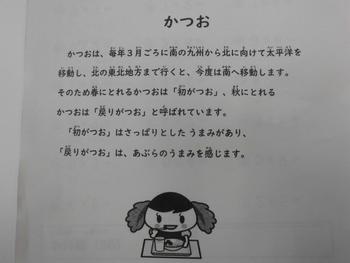 かつお
かつおは、毎年３月ごろに南の九州から北に向けて太平洋を
移動し、北の東北地方まで行くと、今度は南へ移動します。
そのため春にとれるかつおは「初がつお」、秋にとれる
かつおは「戻りがつお」と呼ばれています。
「初がつお」はさっぱりとした うまみがあり、
「戻りがつお」は、あぶらのうまみを感じます。